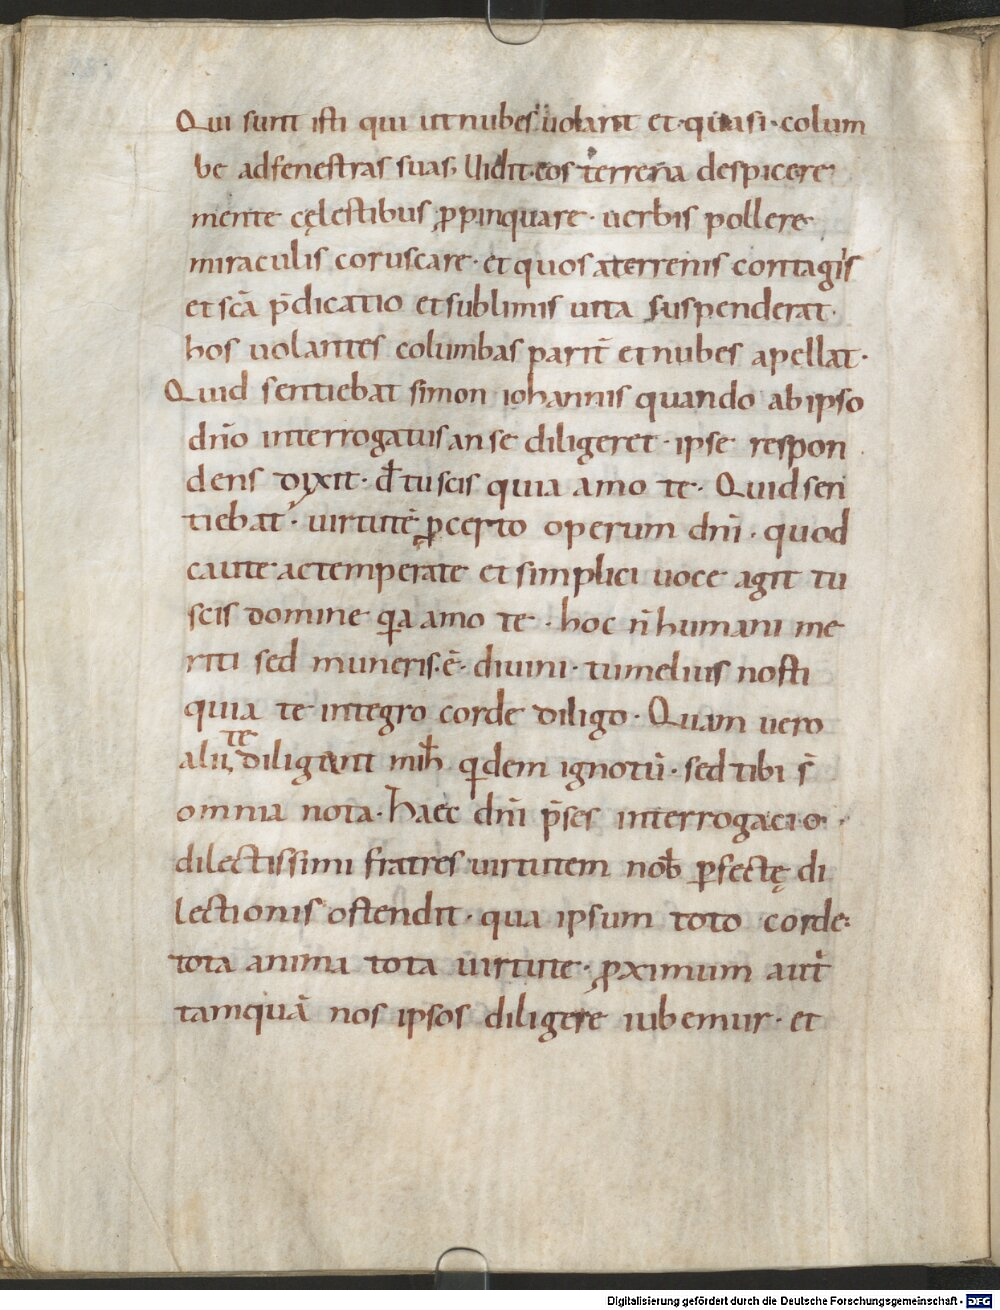 Qui sunt isti qui ut nubes uolant et quasi colum
be ad fenestras suas, Uidit eos terrena despicere
mente cęlestibus ꝓpinquare · uerbis pollere
miraculis coruscare · et quos a terrenis contagiis
et scā p̄dicatio et sublimis uita suspenderat ·
hos uolantes columbas parit̄ et nubes apellat ·
Quid sentiebat simon iohannis quando ab ipso
dn̄o interrogatus an se diligeret · ipse respon
dens dixit · dn̄e tu scis quia amo te · Quid sen
tiebat · uirtutē ꝓ certo operum dn̄i · quod
caute ac temperate et simplici uoce agit tu
scis domine qa amo te · hoc n̄ humani me
riti sed muneris · ē · diuini · tu melius nosti
quia te integro corde diligo · Quam uero
alii te diligant mih̄ qdem ignotū · sed tibi s̄
omnia nota · Haec dn̄i p̄ses interrogacio ·
dilectissimi fratres uirtutem nob̄ ꝑfectę di
lectionis ostendit · qua ipsum toto corde ·
tota anima tota uirtute · ꝓximum aut̄
tamquā nos ipsos diligere iubemur · et
Digitalisierung gefördert durch die Deutsche Forschungsgemeinschaft - DFG